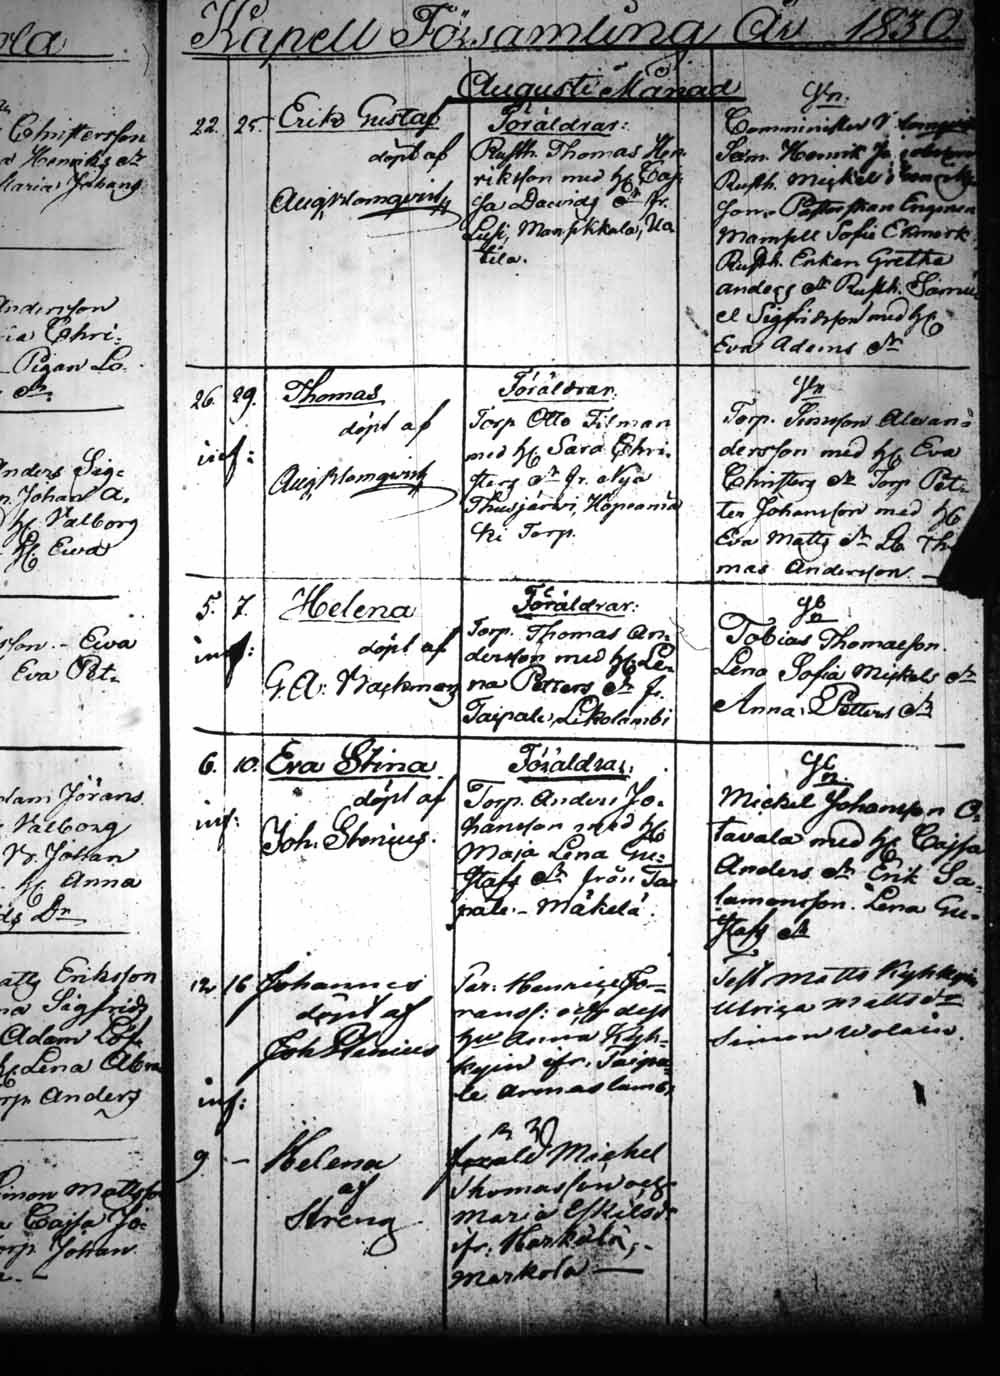 ola
Kapell Församling År 1830
Augusti Månad
Christersson
Henriks dr
Maria Johans
Andersson
ia Chri-
Pigan Lo-
dr
Anders Sig-
n. Johan A.
hu Valborg
hu Ewa
sson - Ewa
Eva Pet-
Adam Jörans
Valborg
W. Johan
hu Anna
ds Dr
Matts Eriksson
na Sigfrids
Adam Löf-
hu Lena Abra
orp. Anders
Simon Mattsso
a Cajsa Jo-
orp. Johan
22. 25. Erik Gustaf
döpt af
Aug. Blomqvist
Föräldrar:
Rusth. Thomas Hen-
riksson med hu Caj-
sa Davids dr fr.
Lusi, Mansikkala, Ua
tila.
Gn.
Comminister
Sam. Henrik
Rusth. Mickel
son
Mamsell Sofie Ekmark
Rusth. Enkan Gretha
Anders dr Rusth. Samu
el Sigfridsson med hu
Eva Adams dr
26. 29. Thomas
inf:
döpt af
Aug. Blomqvist
Föräldrar.
Torp. Otto Filman
med hu Sara Chri-
sters dr fr. Nya
Thusjärvi, Hopeamä
ki Torp.
Gn
Torp. Simson Alexan-
dersson med hu Eva
Christers dr Torp. Pet-
ter Johansson med hu
Eva Matts dr Lb Tho
mas Andersson
5. 7. Helena
inf:
döpt af
G. A. Wachman
Föräldrar:
Torp. Thomas An-
dersson med hu Le-
na Petters dr fr.
Taipale, Likolambi
Gn
Tobias Thomasson.
Lena Sofia Mickels dr
Anna Petters dr
6. 10. Eva Stina
inf:
döpt af
Joh. Stenius.
Föräldrar.
Torp. Anders Jo-
hansson med hu
Maja Lena Gu-
stafs dr från Tai
pale - Mäkelä.
Gn.
Mickel Johansson A-
tavala med hu Cajsa
Anders dr Erik Sa-
lamonsson. Lena Gu-
stafs dr
12 16 Johannes
inf:
döpt af
Joh Stenius
Par: Henric
och dess
hu Anna Kyh-
kyin ifr. Taipa-
le Armaslambi
Test. Matts Kyhkyin
Ulrica Matts dr
Simon Wolain.
9 – Helena
af
Streng
föräld Mickel
Thomasson och
Maria Eskils dr
ifr. Harkälä,
Markola —